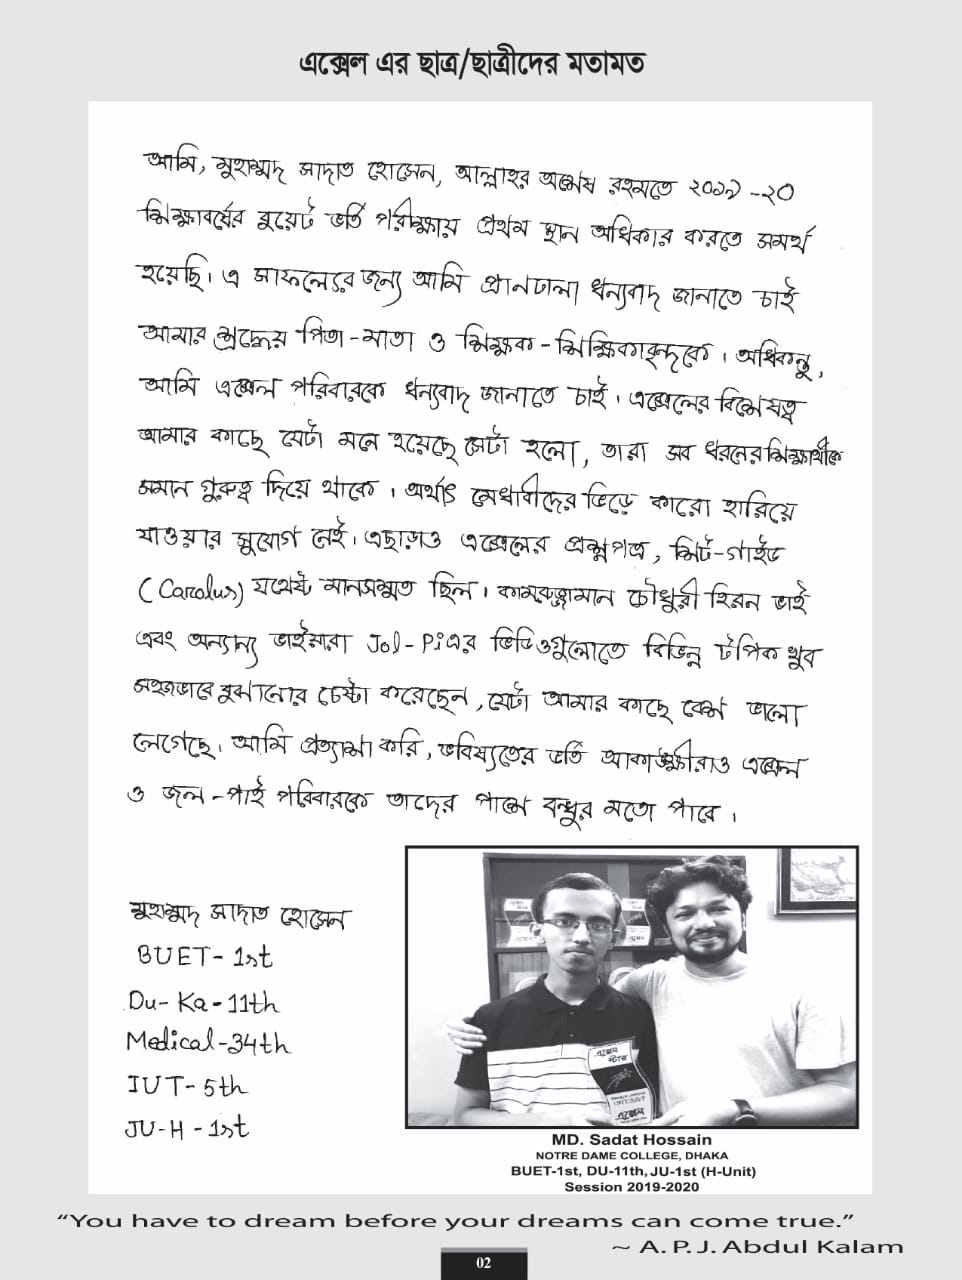 এক্সেল এর ছাত্র/ছাত্রীদের মতামত
আমি, মুহাম্মদ সাদাত হোসেন, আল্লাহর অশেষ রহমতে ২০১৯ -২০
শিক্ষাবর্ষের বুয়েট ভর্তি পরীক্ষায় প্রথম স্থান অধিকার করতে সমর্থ
হয়েছি। এ সাফল্যের জন্য আমি প্রানঢালা ধন্যবাদ জানাতে চাই
আমার শ্রদ্ধেয় পিতা -মাতা ও শিক্ষক -শিক্ষিকাবৃন্দকে। অধিকন্তু,
আমি এক্সেল পরিবারকে ধন্যবাদ জানাতে চাই। এক্সেলের বিশেষত্ব
আমার কাছে যেটা মনে হয়েছে সেটা হলো, তারা সব ধরনের শিক্ষার্থীকে
সমান গুরুত্ব দিয়ে থাকে। অর্থাৎ মেধাবীদের ভিড়ে কারো হারিয়ে
যাওয়ার সুযোগ নেই। এছাড়াও এক্সেলের প্রশ্নপত্র, শিট-গাইড
(Caralus) যথেষ্ট মানসম্মত ছিল। কামরুজ্জামান চৌধুরী হিরন ভাই
এবং অন্যান্য ভাইয়ারা Jol-Pi এর ভিডিওগুলোতে বিভিন্ন টপিক খুব
সহজভাবে বুঝানোর চেষ্টা করেছেন, যেটা আমার কাছে বেশ ভালো
লেগেছে। আমি প্রত্যাশা করি, ভবিষ্যতের ভর্তি আকাঙ্ক্ষীরাও এক্সেল
ও জল -পাই পরিবারকে তাদের পাশে বন্ধুর মতো পাবে।
মুহাম্মদ সাদাত হোসেন
BUET- 1st
Du- Ka -11th
Medical-34th
IUT- 5th
JU-H - 1st
এক্সেল
এক্সেল
MD. Sadat Hossain
NOTRE DAME COLLEGE, DHAKA
BUET-1st, DU-11th, JU-1st (H-Unit)
Session 2019-2020
“You have to dream before your dreams can come true.”
~ A. P. J. Abdul Kalam
02